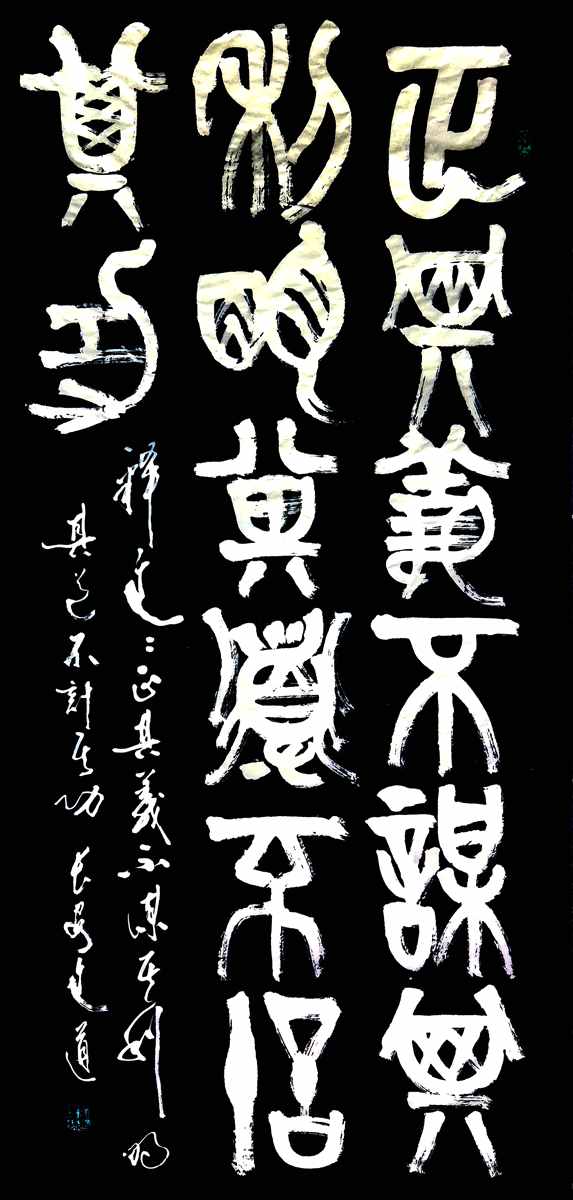 正其義不謀其
利明其道不計
其功
釋文:正其義不謀其利明
其道不計其功 長安文道